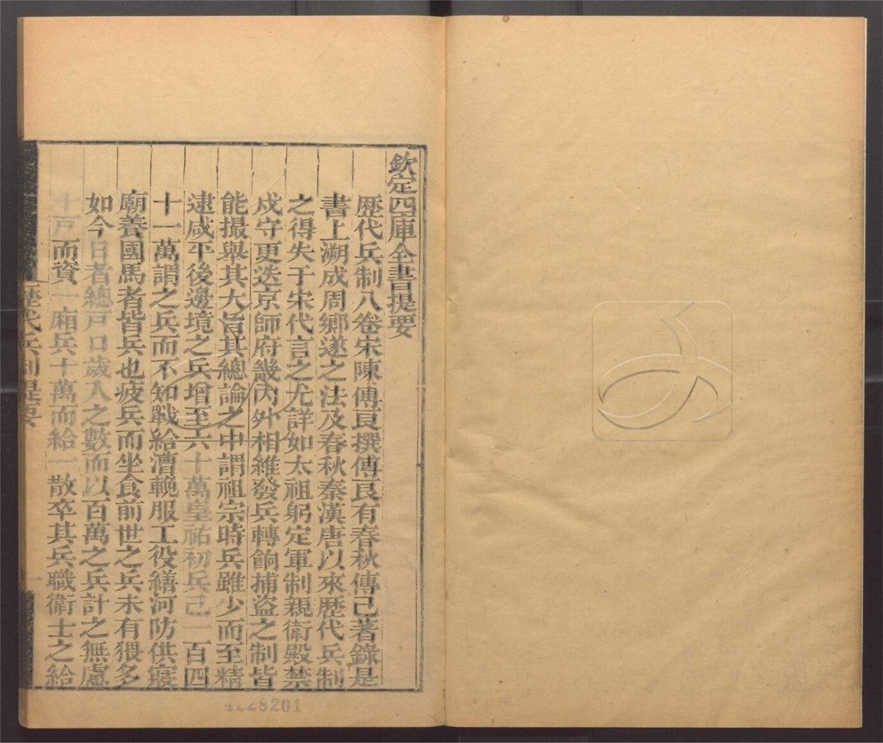 欽定四庫全書提要
歷代兵制八卷宋陳傅良撰傅良有春秋傳已著錄是
書上溯成周鄉遂之法及春秋秦漢唐以來歷代兵制
之得失于宋代言之尤詳如太祖躬定軍制親衛殿禁
戍守更迭京師府畿內外相維發兵轉餉捕盜之制皆
能撮舉其大旨其總論之中謂祖宗時兵雖少而至精
逮咸平後邊境之兵增至六十萬皇祐初兵已一百四
十一萬謂之兵而不知戰給漕輓服工役繕河防供寢
廟養國馬者皆兵也疲兵而坐食前世之兵未有猥多
如今日者總戶口歲入之數而以百萬之兵計之無慮
十戶而資一廂兵十萬而給一散卒其兵職衛士之給
歷代兵制提要
一
8201